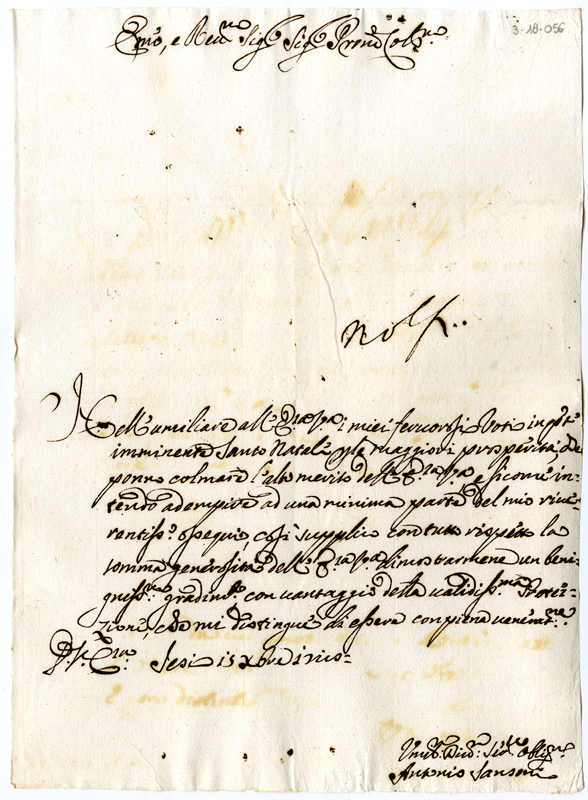 3-18-056
Emo, e Revmo Sigr Sigr Prone Colmo
Nell umiliare all' Emza Vra i miei fervorosi Voti in qste
imminente Santo Natale p le maggiori prosperità, che
ponno colmare l'alto merito dell' Emza Vra, e sicome in-
tendo adempire ad una minima parte del mio rive-
rentissº ossequio, così supplico con tutto rispetto la
somma generosità dell' Emza Vra dimostrarmene un beni-
gnissmo gradimto con vantaggio della validissma Protez-
zione, che mi distingue di essere con piena venerazne
D. V. Emza Jesi 15 Xbre
Antonio Sansoni